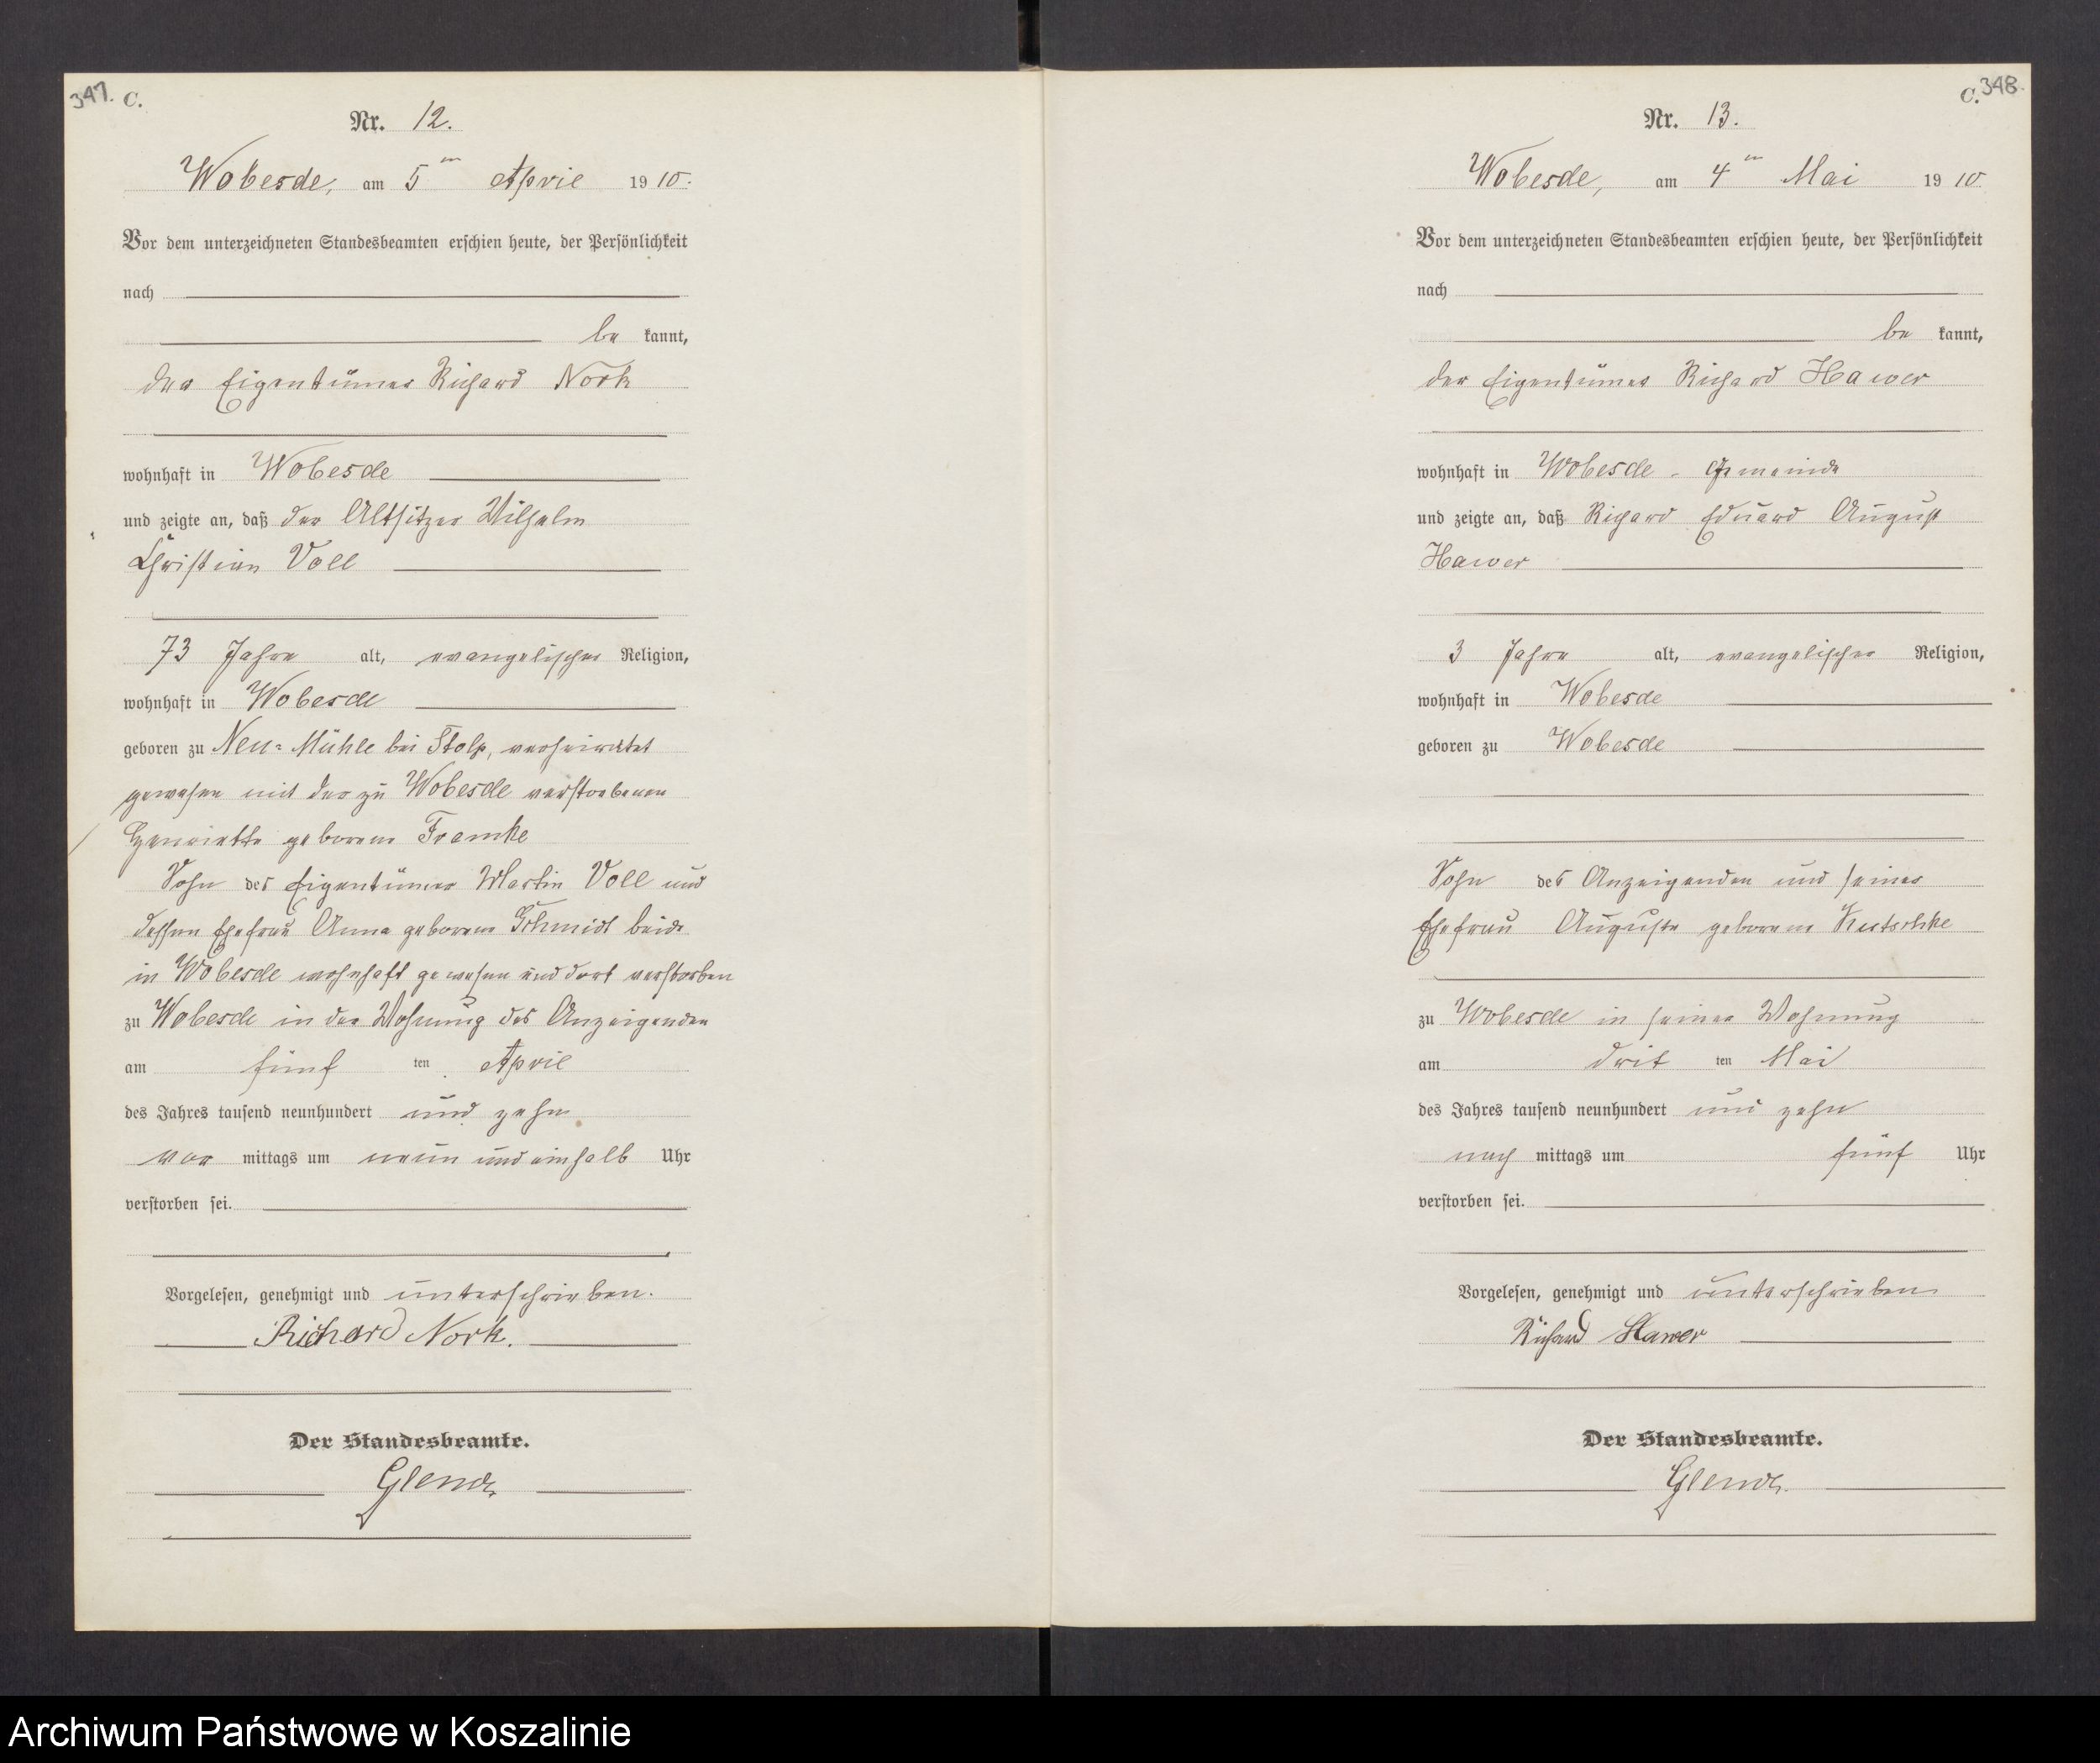 347. C.
Nr. 12.
Wobesde, am 5ten April 1910.
Vor dem unterzeichneten Standesbeamten erschien heute, der Persönlichkeit
nach
be kannt,
der Eigentümer Richard Nork
wohnhaft in Wobesde
und zeigte an, daß der Altsitzer Wilhelm
Christian Voll
73 Jahre alt, evangelischer Religion,
wohnhaft in Wobesde
geboren zu Neu-Mühle bei Stolp, verheiratet
gewesen mit der zu Wobesde verstorbenen
Henriette geborene Framke
Sohn des Eigentümer Martin Voll und
dessen Ehefrau Anna geborene Schmidt beide
in Wobesde wohnhaft gewesen und dort verstorben
zu Wobesde in der Wohnung des Anzeigenden
am fünf ten April
des Jahres tausend neunhundert und zehn
vor mittags um neun und einhalb Uhr
verstorben sei.
Vorgelesen, genehmigt und unterschrieben.
Richard Nork.
Der Standesbeamte.
C. 348.
Nr. 13.
Wobesde, am 4ten Mai 1910
Vor dem unterzeichneten Standesbeamten erschien heute, der Persönlichkeit
nach
be kannt,
der Eigentümer Richard Hawer
wohnhaft in Wobesde - Gemeinde
und zeigte an, daß Richard Eduard August
Hawer
3 Jahre alt, evangelischer Religion,
wohnhaft in Wobesde
geboren zu Wobesde
Sohn des Anzeigenden und seiner
Ehefrau Auguste geborene Kutschke
zu Wobesde in seiner Wohnung
am drit ten Mai
des Jahres tausend neunhundert und zehn
nach mittags um fünf Uhr
verstorben sei.
Vorgelesen, genehmigt und unterschrieben
Richard Hawer
Der Standesbeamte.
Archiwum Państwowe w Koszalinie